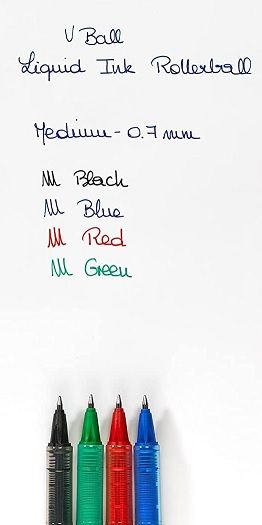 V Ball
Liquid Ink Rollerball
Medium - 0.7 mm
Black
Blue
Red
Green